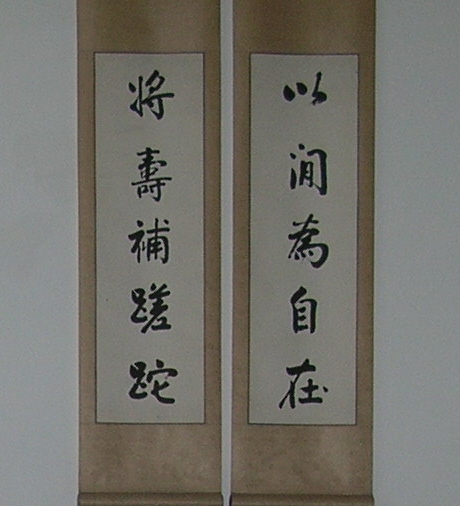 以閒為自在
將壽補蹉跎